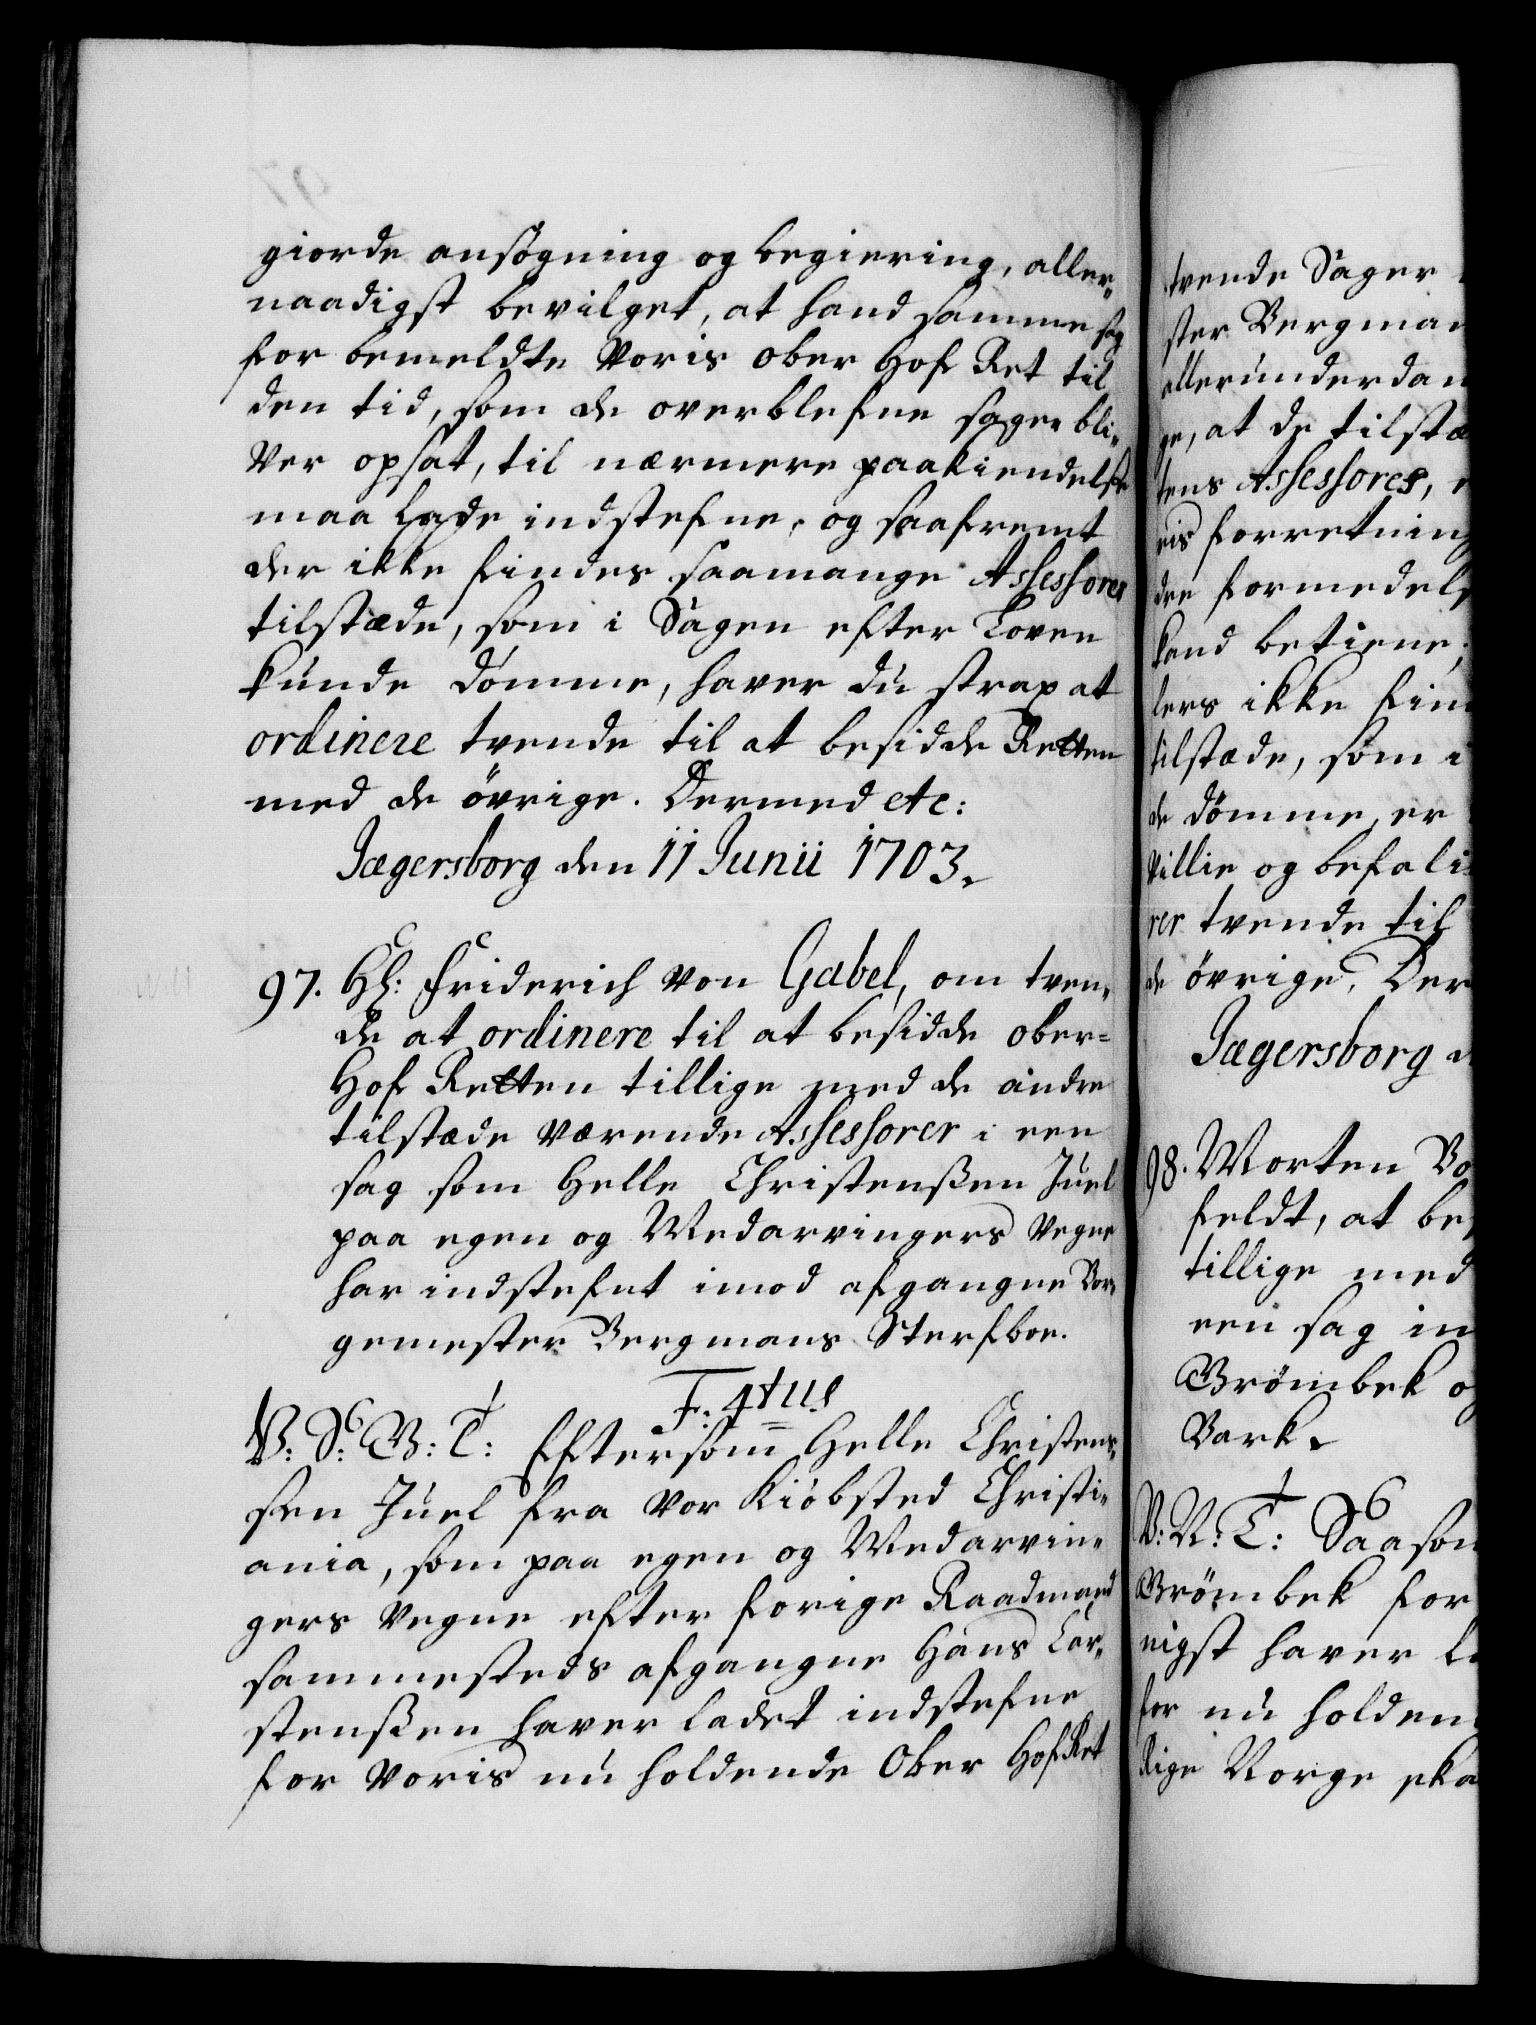 giorde ansögning og begiering, aller-
naadigst bevilget, at hand samme sag
for bemeldte Voris ober Hof Ret til
den tid, som de overblefne sager bli-
ver opsat, til nærmere paakiendelse
maa lade indstefne, og saafremt
der ikke findes saamange Assessorer
tilstæde, som i Sagen efter Loven
kunde dömme, haver du strax at
ordinere tvende til at besidde Retten
med de övrige. Dermed etc:
Jægersborg den 11 Junii 1703.
97. Hl: Friderich von Gabel, om tven-
de at ordinere til at besidde ober-
Hof Retten tillige med de andre
tilstæde værende Assessorer i een
sag som Helle Christenßen Juel
paa egen og Medarvingers Vegne
har indstefnt imod afgangne Bor-
gemester Bergmans Sterfboe.
F: 4tus
V: S: G: T: Eftersom Helle Christens-
sen Juel fra vor Kiöbsted Christi-
ania, som paa egen og Medarvin-
gers Vegne efter forige Raadmand
sammesteds afgangne Hans Car-
stenßen haver ladet indstefne
for Voris nu holdende Ober Hof Ret
tvende Sager
ster Bergman
allerunderdan
ge, at de tilstæ
tens Assessorer,
eis forretning
dre formedels
kand betiene,
lers ikke fin
tilstæde, som i
de dömme, er
Villie og befali
rer tvende til
de övrige. Der
Jægersborg d
98. Morten Bo
feldt, at be
tillige med
een sag in
Brömbek o
Bark.
V: N: T: Saasom
Brömbek for
nigst haver l
for nu holden
Rige Norge ska